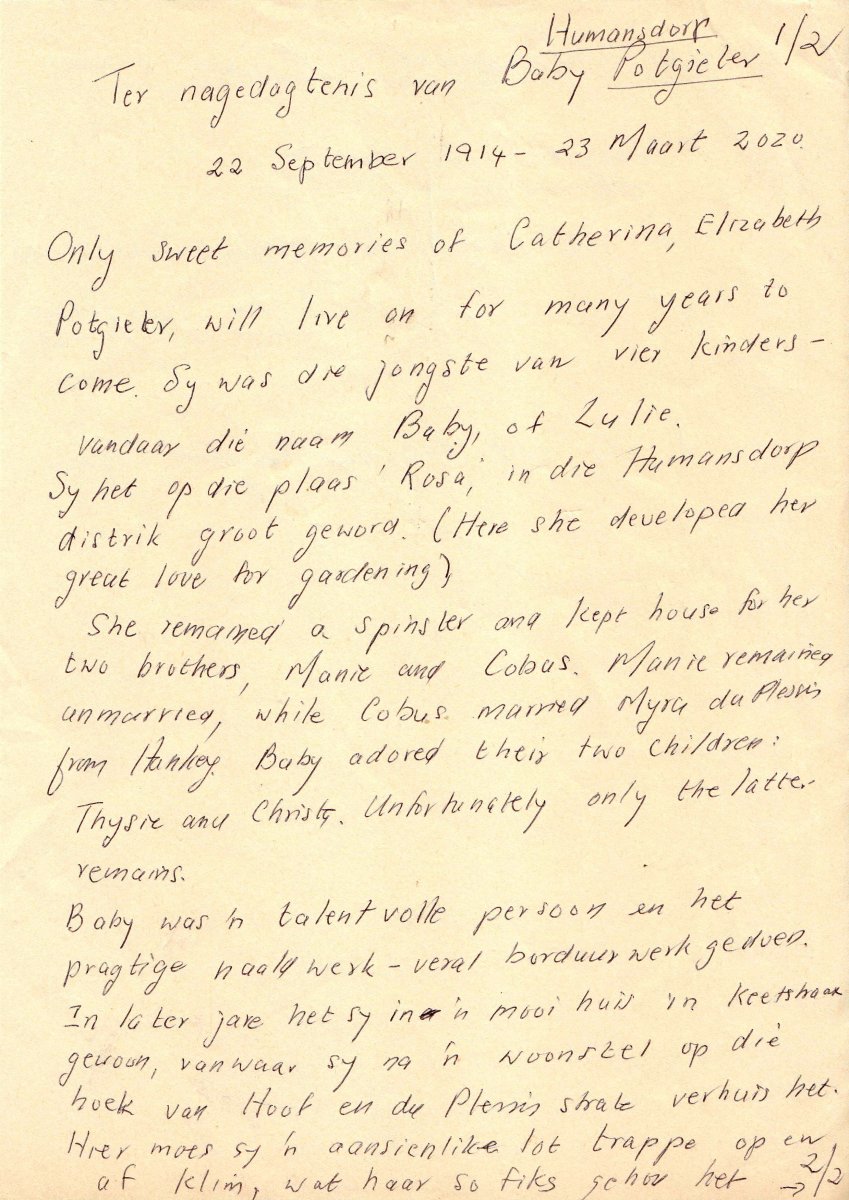 Humansdorp 1/2
Ter nagedagtenis van Baby Potgieter
22 September 1914 - 23 Maart 2020.
Only sweet memories of Catherina, Elizabeth
Potgieter, will live on for many years to
come. Sy was die jongste van vier kinders -
vandaar die naam Baby, of Lulie.
Sy het op die plaas 'Rosa', in die Humansdorp
distrik groot geword. (Here she developed her
great love for gardening)
She remained a spinster and kept house for her
two brothers, Manie and Cobus. Manie remained
unmarried, while Cobus married Myra du Plessis
from Hankey. Baby adored their two children:
Thysie and Christa. Unfortunately only the latter
remains.
Baby was 'n talentvolle persoon en het
pragtige naaldwerk - veral borduurwerk gedoen.
In later jare het sy in 'n mooi huis in
gewoon, vanwaar sy na 'n woonstel op die
hoek van Hoof en du Plessis strate verhuis het.
Hier moes sy 'n aansienlike lot trappe op en
af klim, wat haar so fiks gehou het → 2/2